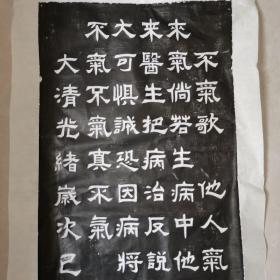 不氣歌 他人氣
來氣倘若生病中他
來醫生把病治反説
大可懼誠恐因病將
不氣不氣真不氣
大清光緒歲次